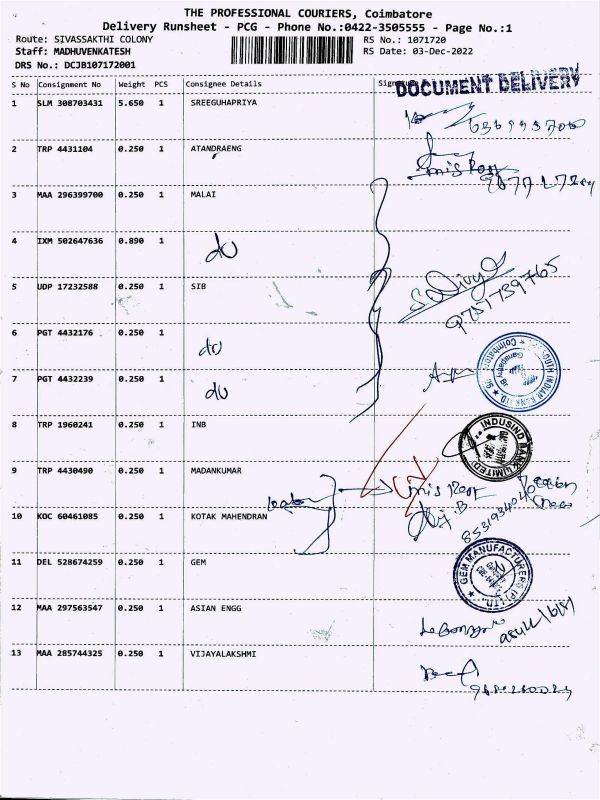 THE PROFESSIONAL COURIERS, Coimbatore
Delivery Runsheet - PCG - Phone No.:0422-3505555 - Page No.:1
Route: SIVASSAKTHI COLONY RS No.: 1071720
Staff: MADHUVENKATESH RS Date: 03-Dec-2022
DRS No.: DCJB107172001
S No Consignment No Weight PCS Consignee Details
DOCUMENT DELIVERY
1 SLM 308703431 5.650 1 SREEGUHAPRIYA
2 TRP 4431104 0.250 1 ATANDRAENG
3 MAA 296399700 0.250 1 MALAI
4 IXM 502647636 0.890 1 do
5 UDP 17232588 0.250 1 SIB
S. Divya
9787739765
6 PGT 4432176 0.250 1 do
7 PGT 4432239 0.250 1 do
8 TRP 1960241 0.250 1 INB
INDUSIND BANK LIMITED
9 TRP 4430490 0.250 1 MADANKUMAR
10 KOC 60461085 0.250 1 KOTAK MAHENDRAN
11 DEL 528674259 0.250 1 GEM
GEM MANUFACTURERS (P) LTD.
12 MAA 297563547 0.250 1 ASIAN ENGG
13 MAA 285744325 0.250 1 VIJAYALAKSHMI